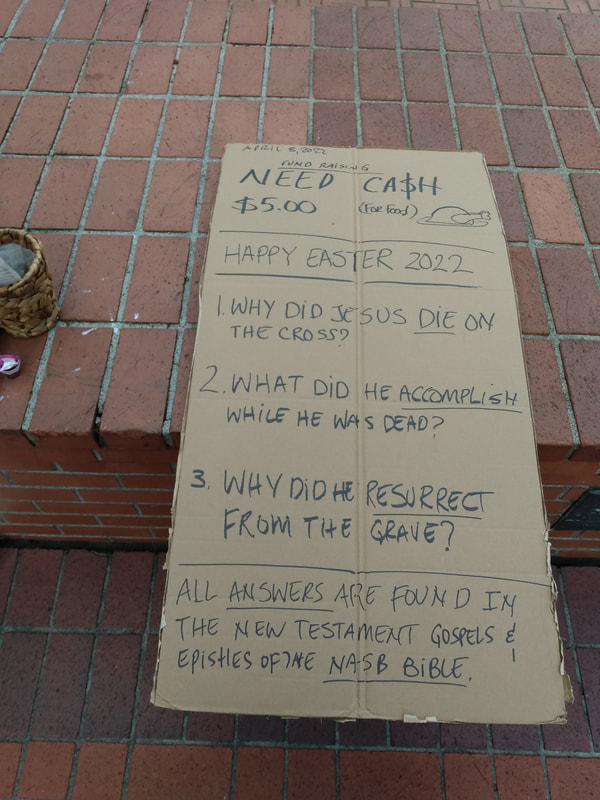 APRIL 8, 2022
FUND RAISING
NEED CA$H
$5.00 (FOR FOOD)
HAPPY EASTER 2022
1. WHY DID JESUS DIE ON
THE CROSS?
2. WHAT DID HE ACCOMPLISH
WHILE HE WAS DEAD?
3. WHY DID HE RESURRECT
FROM THE GRAVE?
ALL ANSWERS ARE FOUND IN
THE NEW TESTAMENT GOSPELS &
EPISTLES OF THE NASB BIBLE.